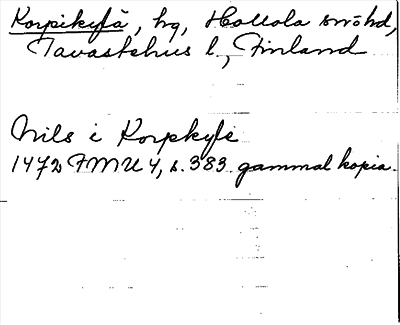 Korpikylä, by, Hollola snöhd,
Tavastehus l., Finland
Nils i Korpkyle
1472 FMU 4, s. 383 gammal kopia.